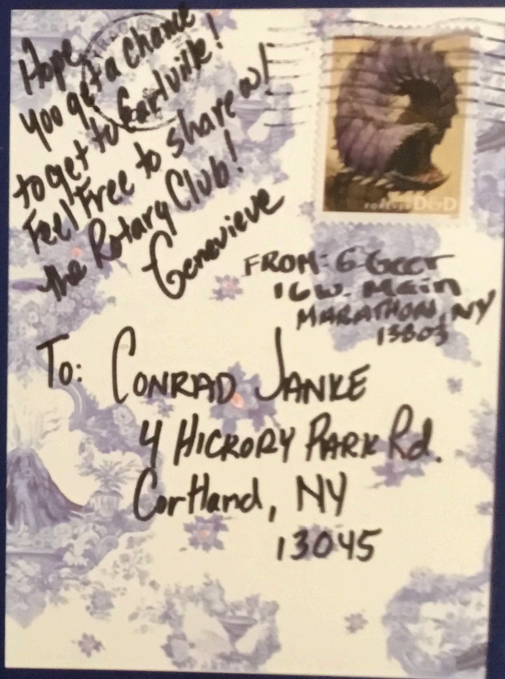 Hope
you get a chance
to get to Earlville!
Feel Free to share w/
the Rotary Club!
Genevieve
FOREVER D&D
FROM: G Geer
16 W. Main
MARATHON, NY
13803
To: CONRAD JANKE
4 HICKORY PARK Rd.
Cortland, NY
13045